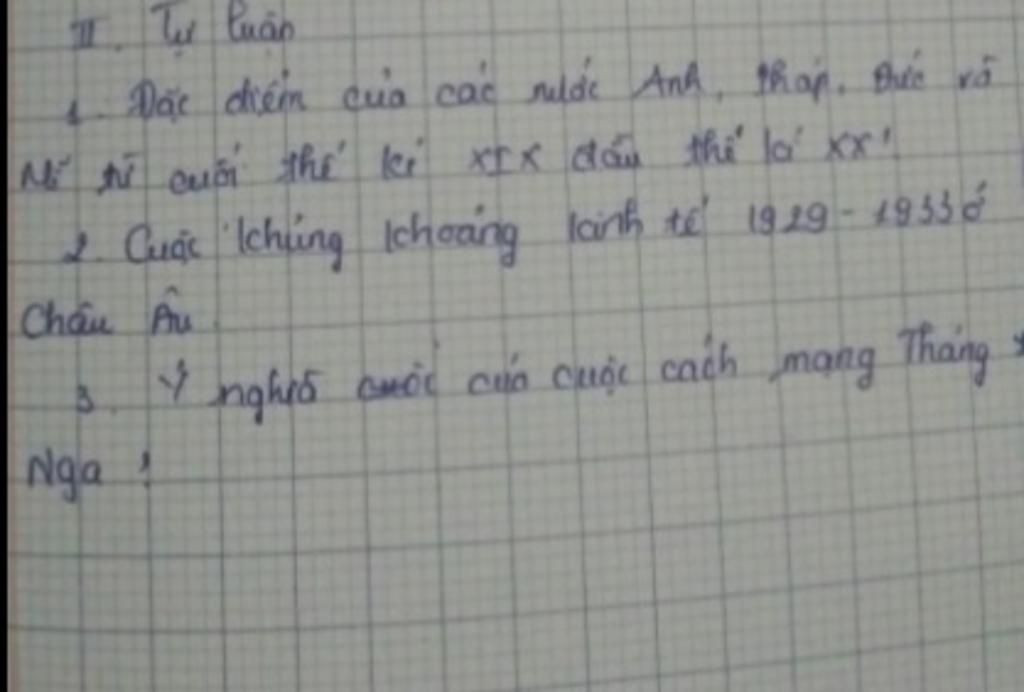 III. Tự luận
1. Đặc điểm của các nước Anh, Pháp, Đức và
Mĩ từ cuối thế kỉ XIX đầu thế kỉ XX!
2. Cuộc khủng khoảng kinh tế 1929-1933 ở
Châu Âu
3. Ý nghĩa của cuộc cách mạng Tháng
Nga!